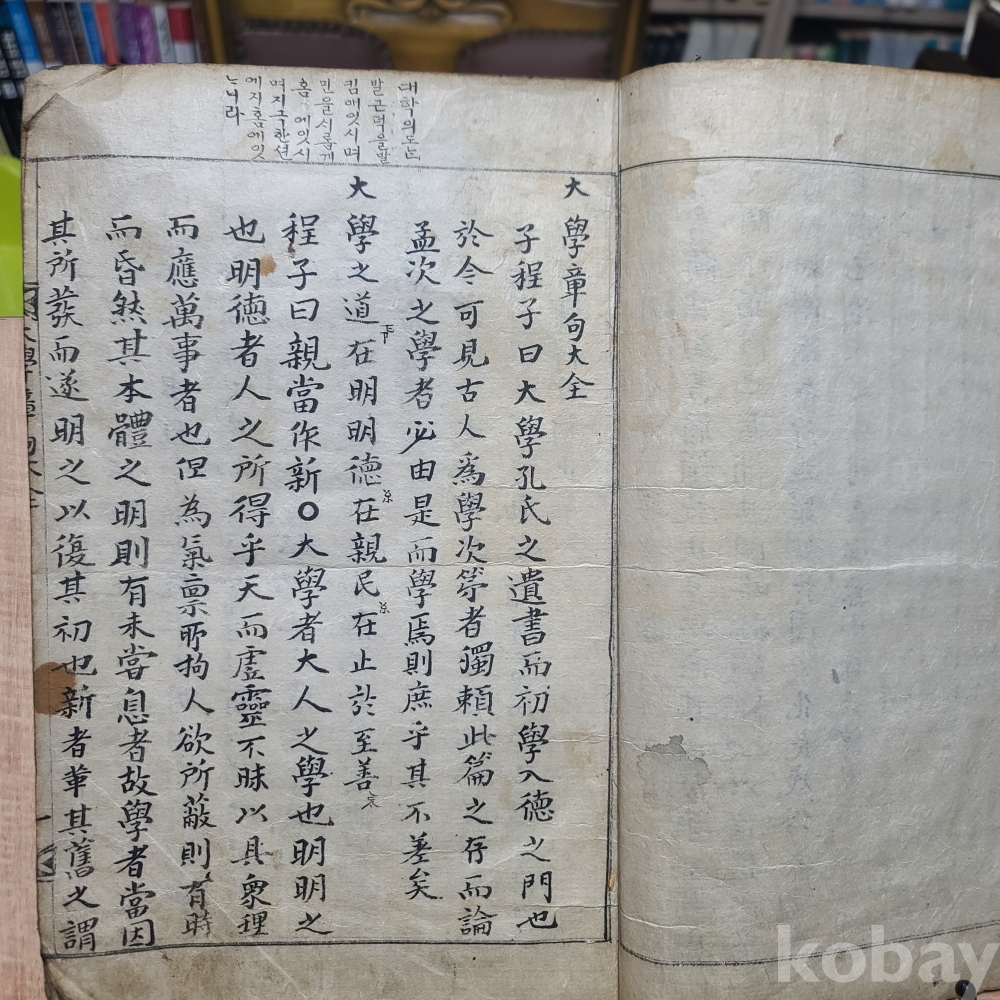 대학의도는
발근덕을발
킴애잇시며
민을시롭게
홈에잇시
며지극한션
에지홈에잇
느니라
大學章句大全
子程子曰大學孔氏之遺書而初學入德之門也
於今可見古人爲學次第者獨賴此篇之存而論
孟次之學者必由是而學焉則庶乎其不差矣
大學之道在明明德在親民在止於至善
程子曰親當作新○大學者大人之學也明明之
也明德者人之所得乎天而虛靈不昧以具衆理
而應萬事者也但為氣禀所拘人欲所蔽則有時
而昏然其本體之明則有未嘗息者故學者當因
其所發而遂明之以復其初也新者革其舊之謂
大學章句大全
一
kobay